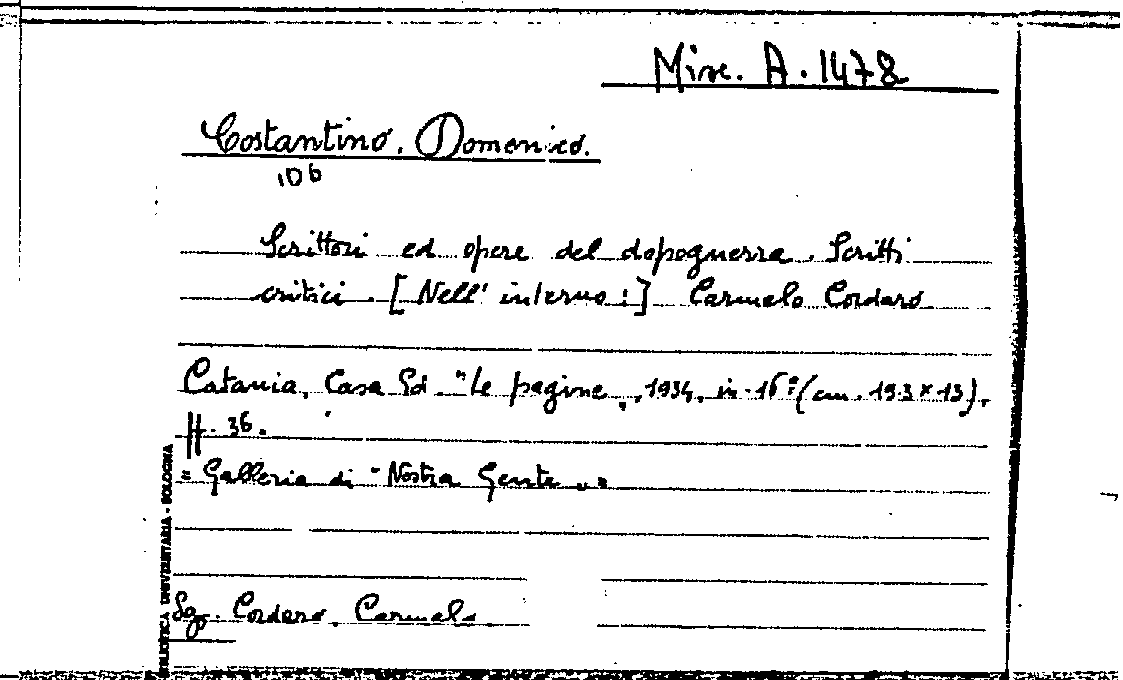 Misc. A. 1478
Costantino, Domenico.
106
Scrittori ed opere del dopoguerra. Scritti
critici. [Nell' interno:] Carmelo Cordaro
Catania, Casa Ed. "Le pagine", 1934, in-16° (cm. 19.3 x 13).
pp. 36.
= Galleria di "Nostra Gente". =
Sog. Cordaro, Carmelo
BIBLIOTECA UNIVERSITARIA - BOLOGNA